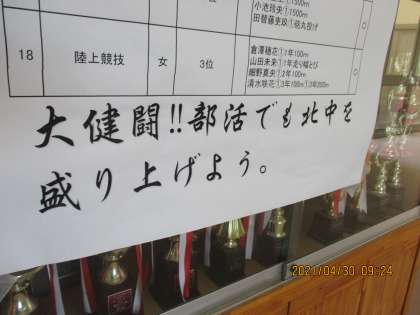 小池玲央①1500m
田替藤吏玖①砲丸投げ
18 陸上競技 女 3位 ○
倉澤穂花①1年100m
山田未来①1年走り幅とび
細野真央①2年100m
清水咲花①3年100m①3年200m
大健闘!!部活でも北中を
盛り上げよう。
2021/04/30 09:24